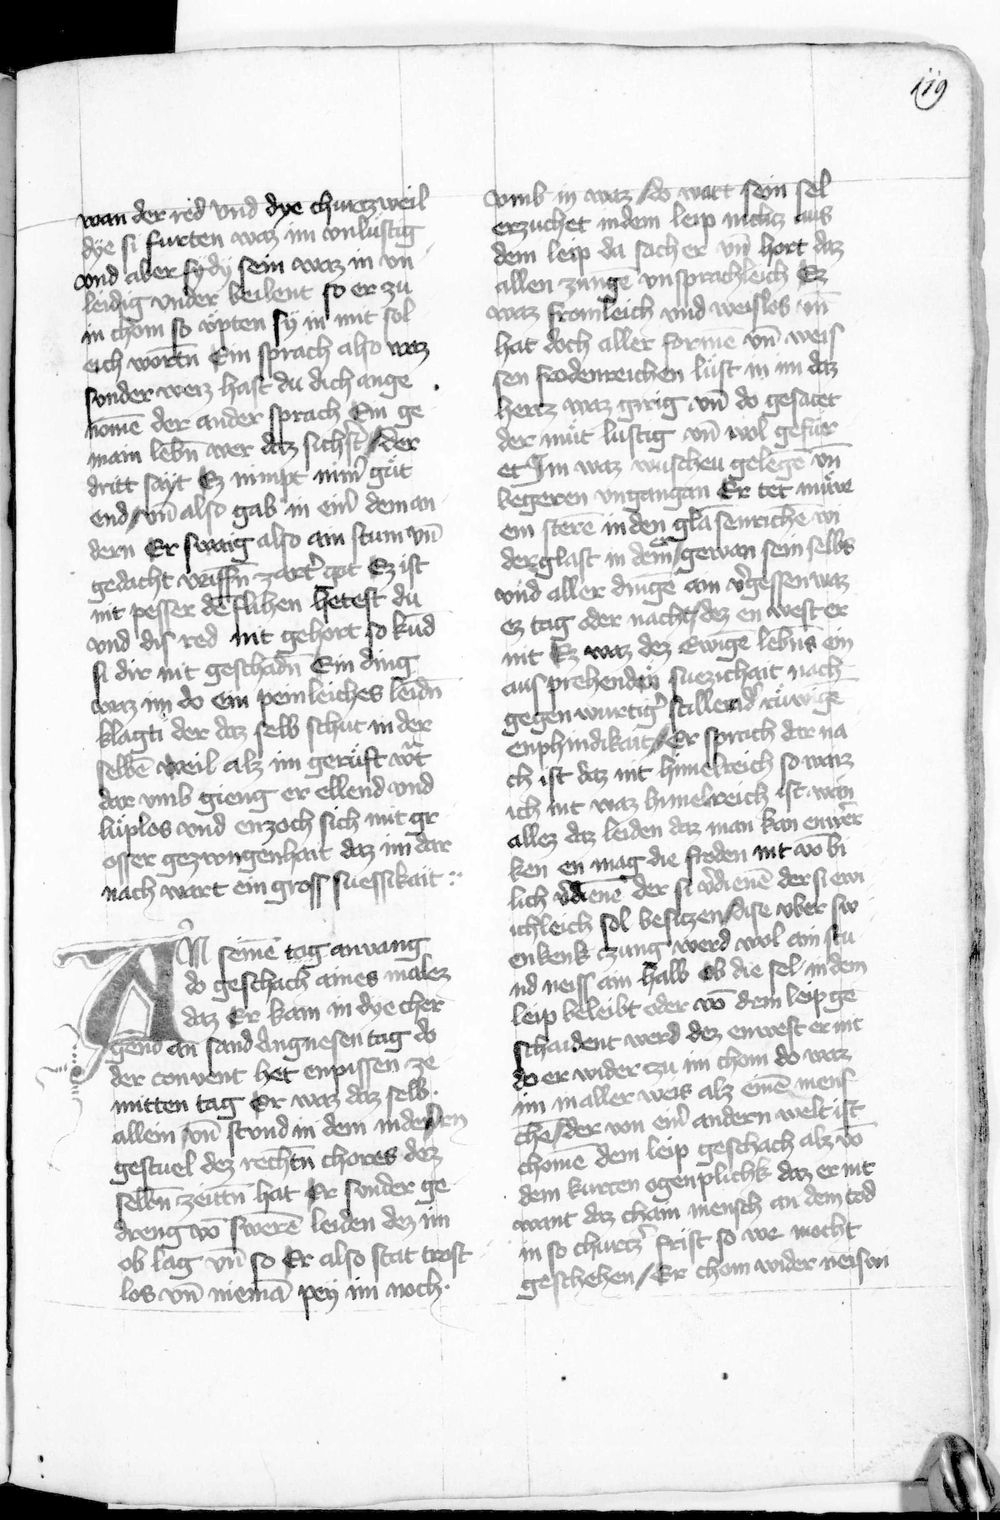 119
wan der red vnd dye churczweil
dye si furten waz im vnlustig
vnd aber sydy sein waz in vn̄
leidig vnder beilent so er zu
in chom so vpten sy in mit sol
eich wortn̄ Ein sprach also waz
sonder weiz hast du dich ange
nomē der ander sprach Ein ge
main lebn̄ wer daz sichst̓ / der
dritt sayt Ez nimpt nim̄ gůt
end / vn̄ also gab in ein̓ dem an
dern Er swaig also ain stum vn̄
gedacht zart̓ got Ez ist
nit pesser dē flihen hetest du
vnd dis red nit gehort so kund
si dir nit geschadn̄ Ein ding
waz im do ein peinleiches leidn̄
klagti der daz selb schut in der
selbē weil alz im geruft
dar vmb gieng er ellend vnd
lieplos vnd enzoch sich mit gr
osser gezwngenhait daz im dar
nach wart ein gross suessikait :·
AN seinē tag anvang
do geschach aines malez
daz Er kam in dye cher
gend an sand Angnesen tag do
der convent het enpissen ze
mitten tag Er waz daz selb
allein vn̄ stvnd in dem indersten
gestuel dez rechtn̄ chores dez
selbn̄ zeittn̄ hat Er sunder ge
dreng vō swerē leiden dez im
ob lag vn̄ so Er also stat trost
los vn̄ niemā pey im noch
vmb in waz / do wart sein sel
erzuchet in dem leip nichtz aus
dem leip da sach er vn̄ hort daz
allen zungē vnsprachleich Ez
waz fromleich vnd weislos vn̄
hat doch aller formē vn̄ weis
sen frodenreichen lust in im daz
hercz waz girig vn̄ do gesatet
der můt lustig vn̄ wol gefůr
et Im waz wuschen gelegē vn̄
begeren vngangan Er tet nuwe
ein sterē in den glasenriche wi
derglast in dem er gewan sein selbs
vnd aller dingē ain v̓gessen waz
ez tag oder nacht / dez en west er
nit Ez waz dez Ewigē lebns ein
aus prehenden suezichait nach
gegen wurtig̓ stillend̓ růwigē
enphindikait / Er sprach dar na
ch ist daz nit himelreich so waiz
ich nit waz himelreich ist wan
allez daz leiden daz man kan
ken en mag die froden nit vō bi
lich v̓dienē der si v̓dienē der si ewi
ichleich sol besitzen / dise vber sw
enkenk zung werd wol ain stu
nd neiss ain halb Ob die sel in dem
leip beleibt oder vō dem leip ge
schaident werd dez enwest er nit
do er wider zu im chom do waz
im in aller weis alz einē mens
chē / der von ein̓ andern welt ist
chomē dem leip geschach alz vō
dem kurczen ogenplichk daz er nit
want daz chain mensch an dem tod
in so churcz̓ frist so we mocht
geschehen / Er chom wider neiswn